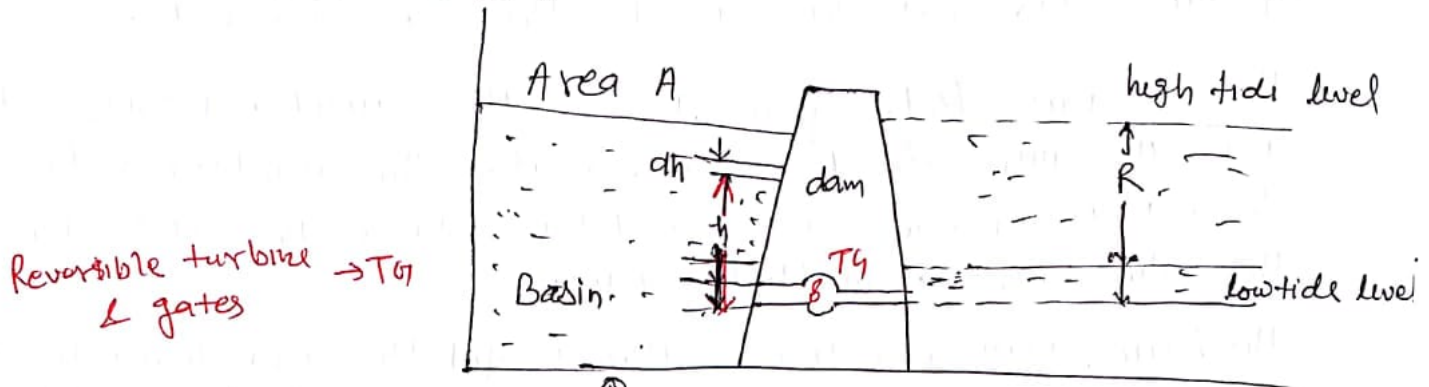 Area A
high tide level
dh
dam
R
h
Reversible turbine → TG
& gates
TG
Basin.
low tide level